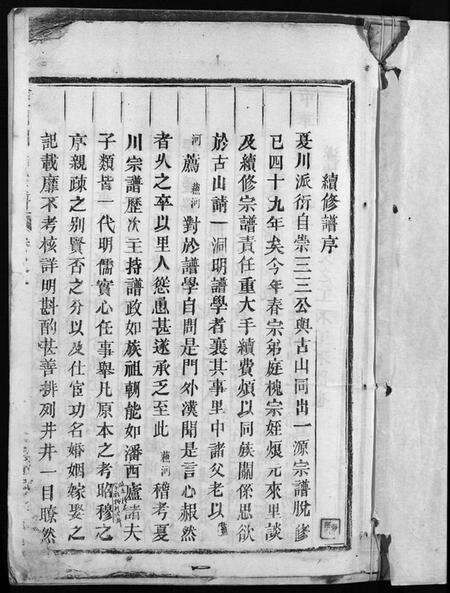 續修譜序
夏川派衍自崇三三公與古山同出一源宗譜脫修
已四十九年矣今年春宗弟庭槐宗姪煥元來里談
及續修宗譜責任重大手續費煩以同族關係思欲
於古山請一洞明譜學者襄其事里中諸父老以燕
河薦燕河對於譜學自問是門外漢聞是言心赧然
者久之卒以里人慫恿甚遂承之至此燕河稽考夏
川宗譜歷次主持譜政如族祖朝能如潘西廬諸夫
子類皆一代明儒實心任事舉凡原本之考昭穆之
序親疎之別賢否之分以及仕宦功名婚姻嫁娶之
記載靡不考核詳明斟酌甚善排列井井一目瞭然